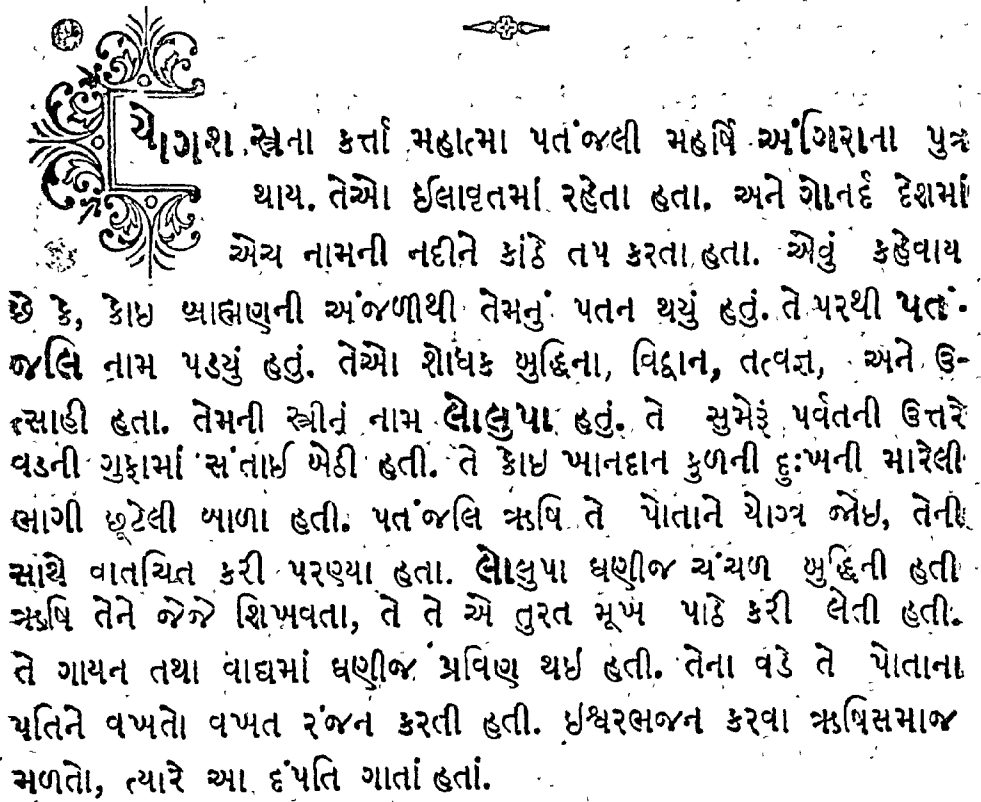 યોગશાસ્ત્રના કર્ત્તા મહાત્મા પતંજલી મહર્ષિ અંગિરાના પુત્ર
થાય. તેઓ ઈલાવૃતમાં રહેતા હતા. અને ગોનર્દ દેશમાં
એચ નામની નદીને કાંઠે તપ કરતા હતા. એવું કહેવાય
છે કે, કોઇ બ્રાહ્મણની અંજળીથી તેમનું પતન થયું હતું. તે પરથી પતં-
જલિ નામ પડયું હતું. તેઓ શોધક બુદ્ધિના, વિદ્વાન, તત્વજ્ઞ, અને ઉ-
ત્સાહી હતા. તેમની સ્ત્રીનું નામ લોલુપા હતું. તે સુમેરૂં પર્વતની ઉત્તરે
વડની ગુફામાં સંતાઈ બેઠી હતી. તે કોઇ ખાનદાન કુળની દુઃખની મારેલી
ભાગી છૂટેલી બાળા હતી. પતંજલિ ઋષિ તે પોતાને યોગ્ય જોઇ, તેની
સાથે વાતચિત કરી પરણ્યા હતા. લોલુપા ઘણીજ ચંચળ બુદ્ધિની હતી
ઋષિ તેને જેજે શિખવતા, તે તે એ તુરત મૂખ પાઠે કરી લેતી હતી.
તે ગાયન તથા વાદ્યમાં ઘણીજ પ્રવિણ થઇ હતી. તેના વડે તે પોતાના
પતિને વખતો વખત રંજન કરતી હતી. ઇશ્વરભજન કરવા ઋષિસમાજ
મળતો, ત્યારે આ દંપતિ ગાતાં હતાં.